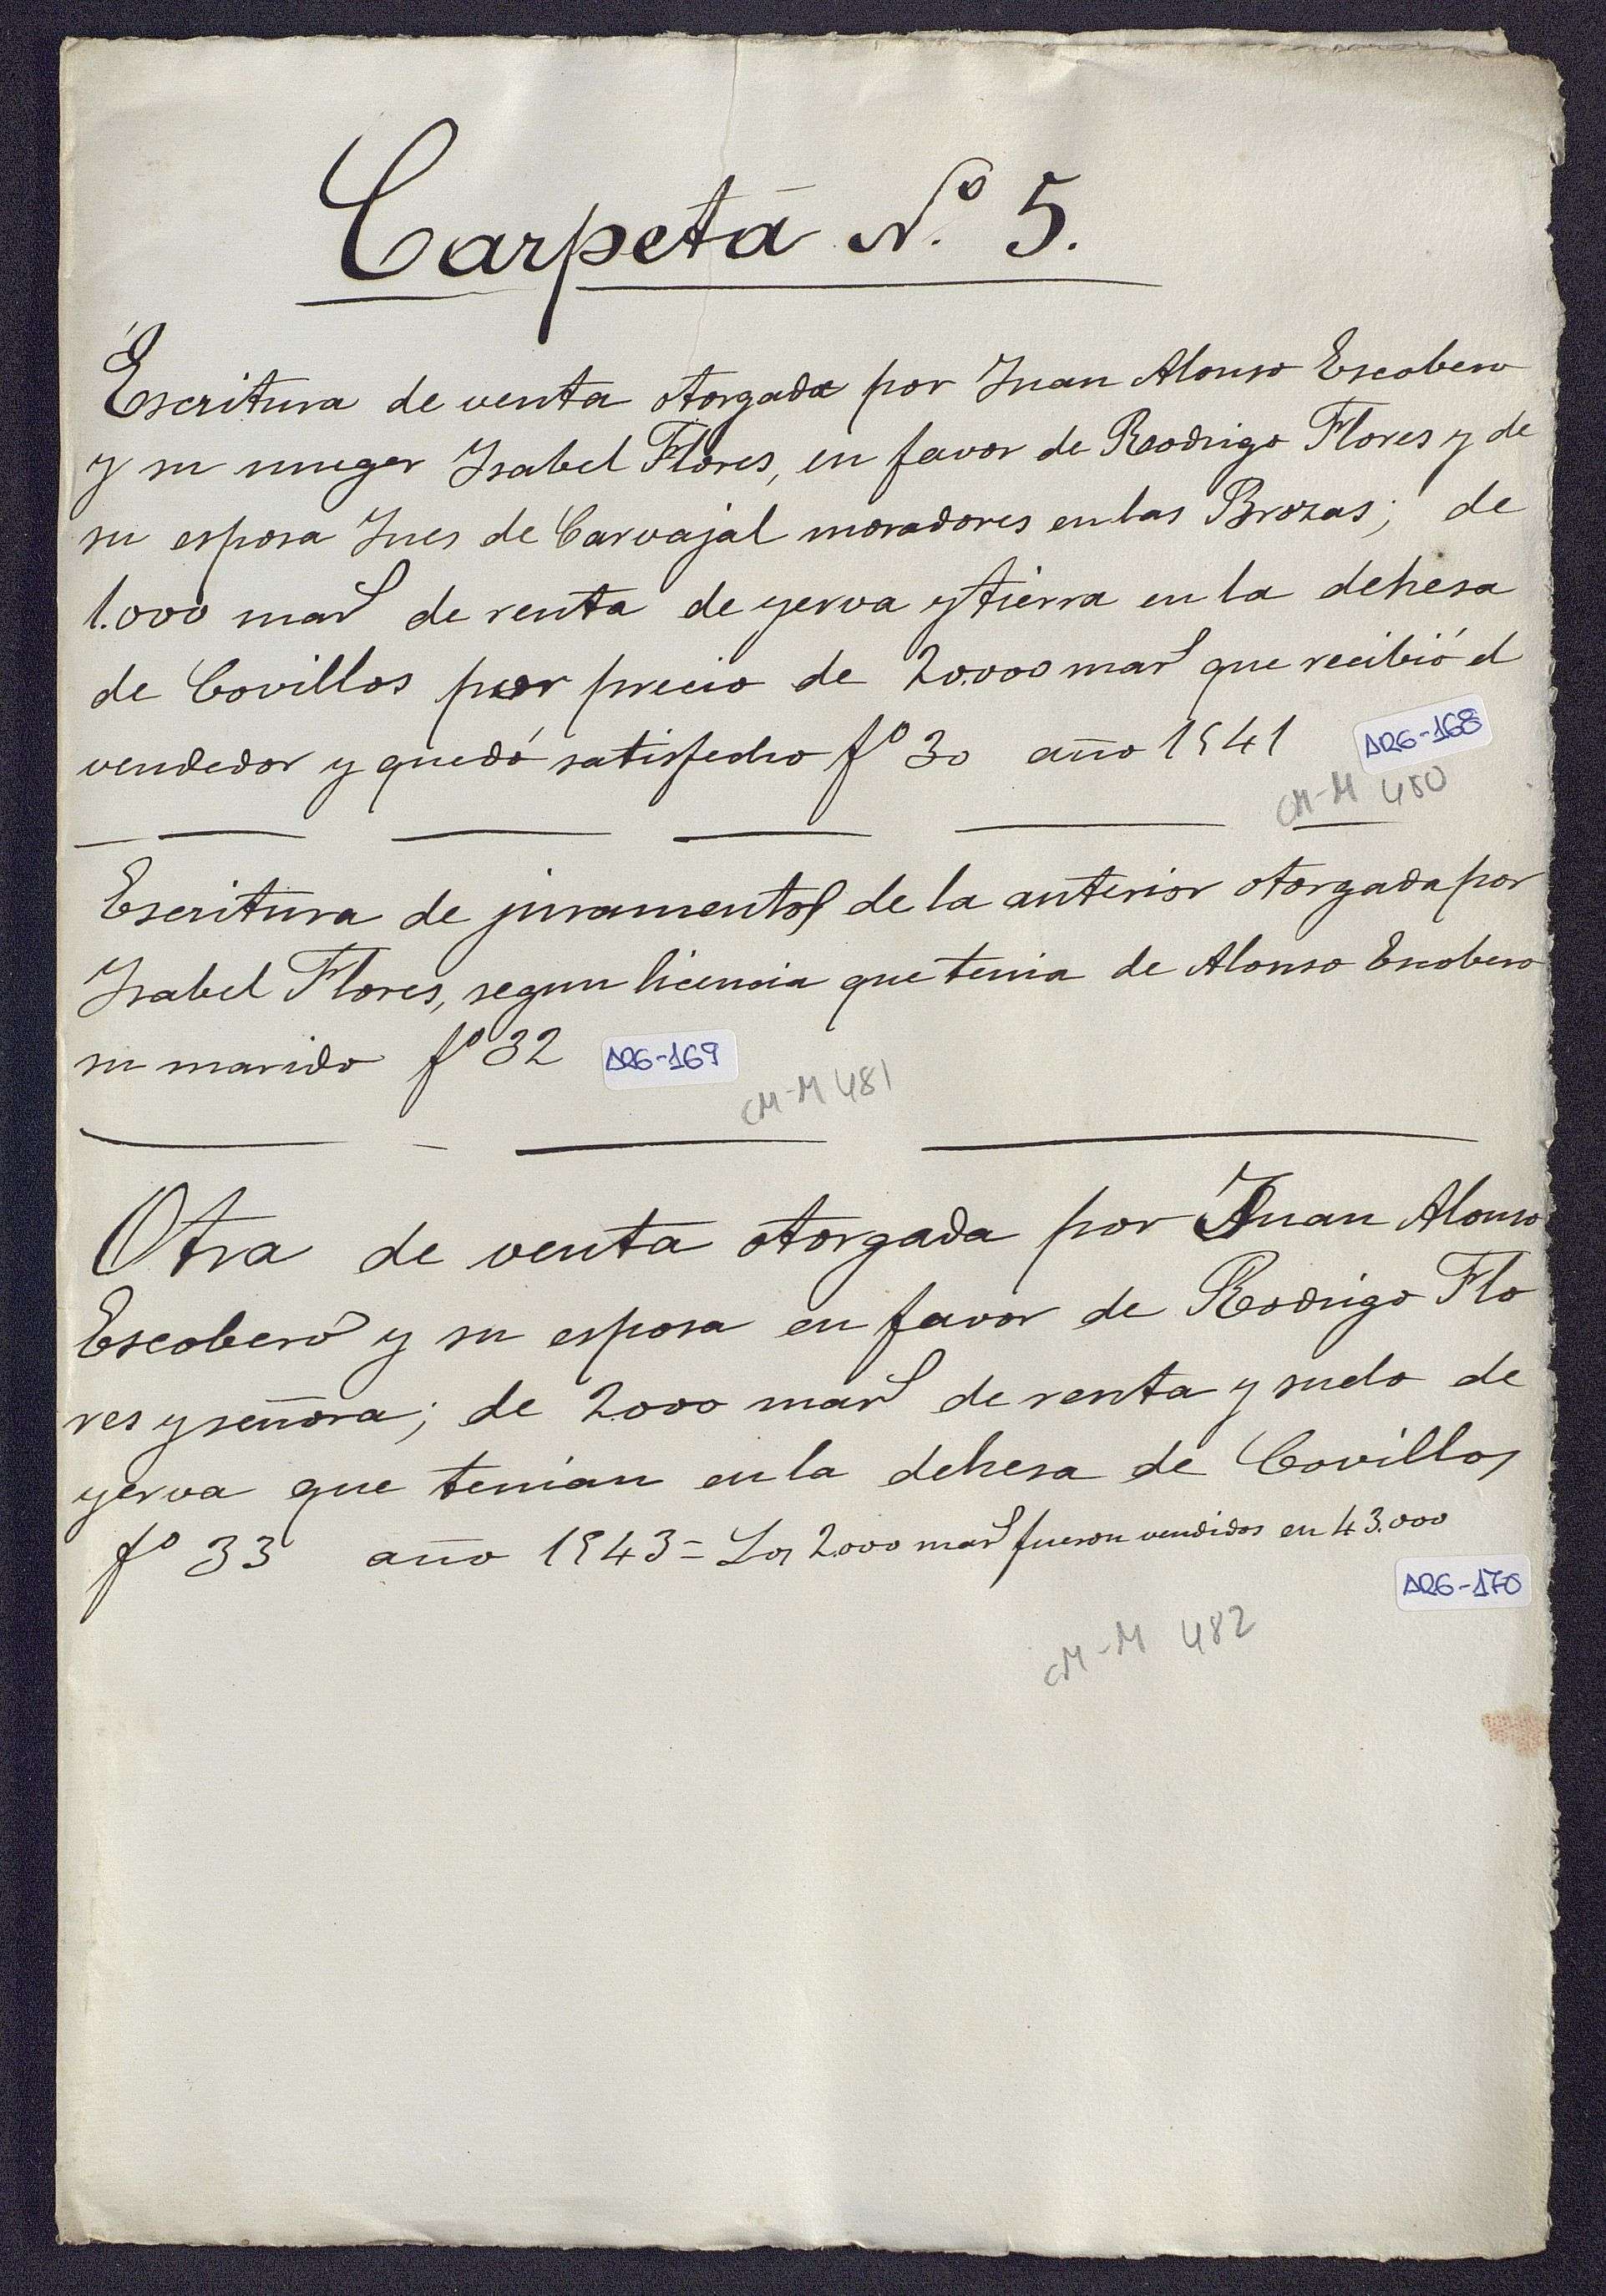 Carpeta N.º 5.
Escritura de venta otorgada por Juan Alonso Escobero
y su muger Ysabel Flores, en favor de Rodrigo Flores y de
su esposa Ynes de Carvajal moradores en las Brozas; de
1.000 mars de renta de yerva y tierra en la dehesa
de Covillos por precio de 20.000 mars que recibió el
vendedor y quedó satisfecho fº 30 año 1541
ARG-168
CM-M 480
Escritura de juramento de la anterior otorgada por
Ysabel Flores, segun licencia que tenia de Alonso Escobero
su marido fº 32
ARG-169
CM-M 481
Otra de venta otorgada por Juan Alonso
Escobero y su esposa en favor de Rodrigo Flo
res y señora; de 2.000 mars de renta y suelo de
yerva que tenian en la dehesa de Covillos
fº 33 año 1543 = Los 2.000 mars fueron vendidos en 43.000
ARG-170
CM-M 482